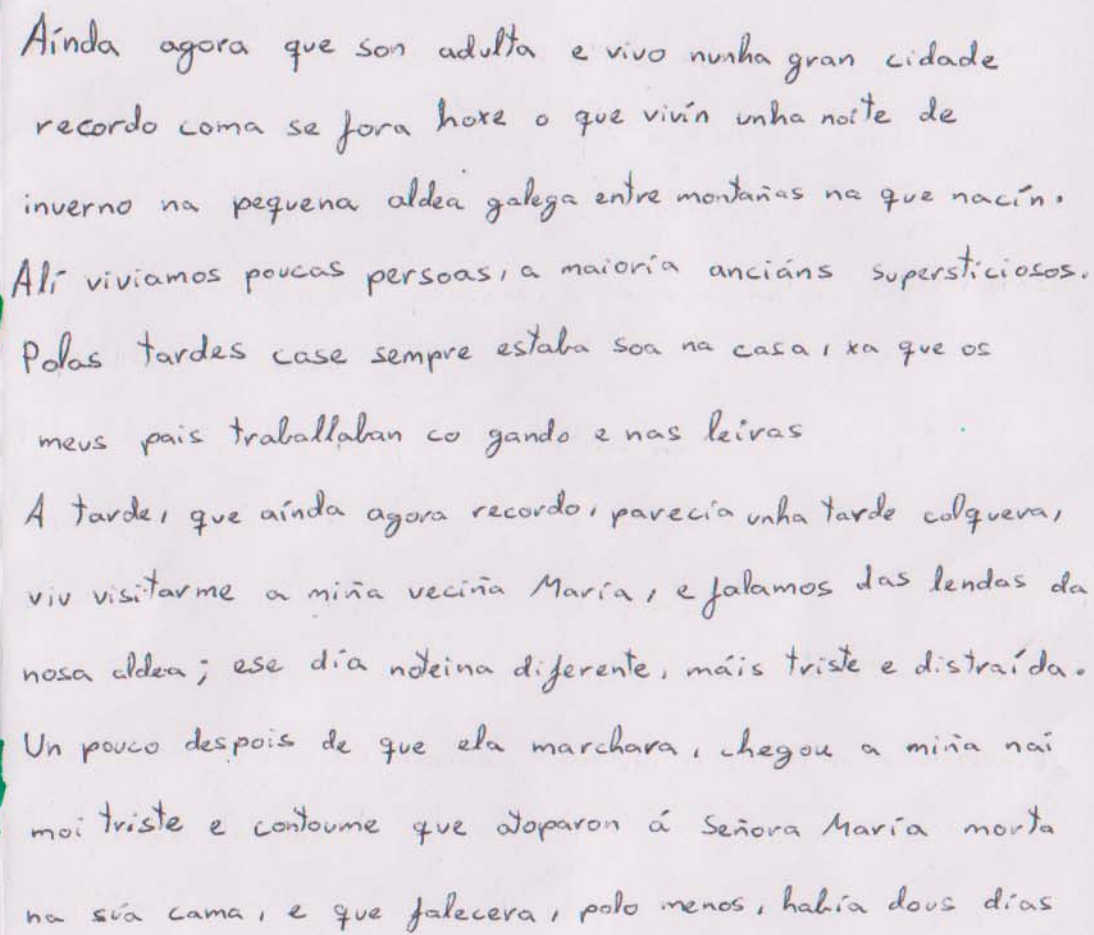 Aínda agora que son adulta e vivo nunha gran cidade
recordo coma se fora hoxe o que vivín unha noite de
inverno na pequena aldea galega entre montañas na que nacín.
Alí viviamos poucas persoas, a maioría anciáns supersticiosos.
Polas tardes case sempre estaba soa na casa, xa que os
meus pais traballaban co gando e nas leiras
A tarde, que aínda agora recordo, parecía unha tarde calquera,
viu visitarme a miña veciña María, e falamos das lendas da
nosa aldea; ese día noteina diferente, máis triste e distraída.
Un pouco despois de que ela marchara, chegou a miña nai
moi triste e contoume que atoparon á Señora María morta
na súa cama, e que falecera, polo menos, había dous días